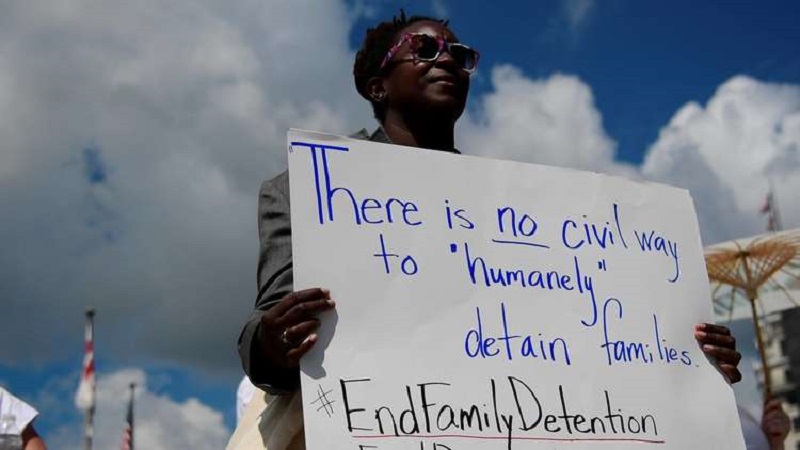 "There is no civil way
to "humanely"
detain families.
#EndFamilyDetention